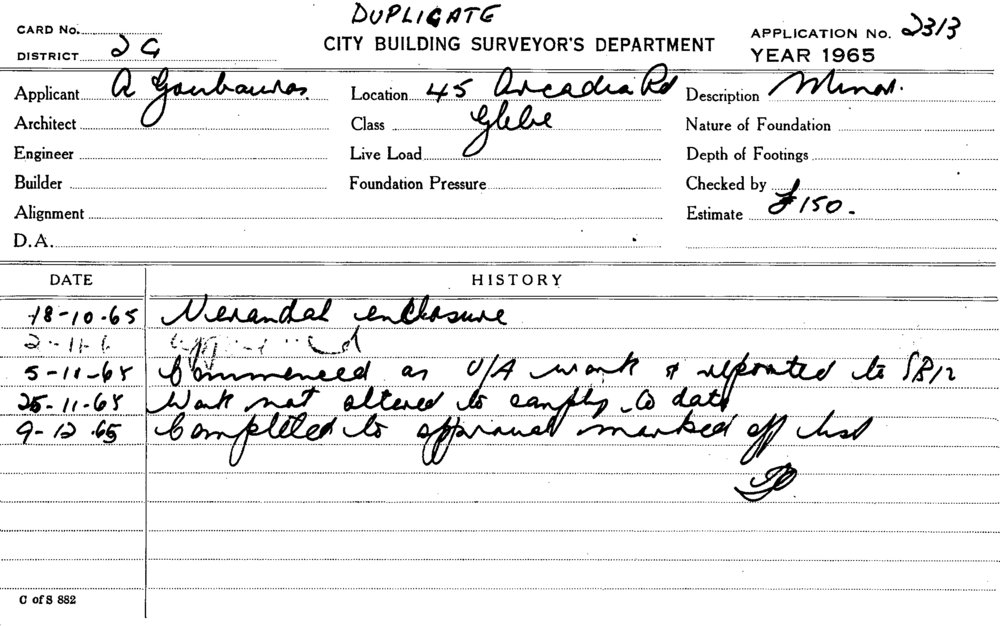 DUPLICATE
CARD No.
CITY BUILDING SURVEYOR'S DEPARTMENT
APPLICATION No. 2313
DISTRICT 2 G
YEAR 1965
Applicant A
Location 45 Arcadia Rd
Description Minor.
Architect
Class Glebe
Nature of Foundation
Engineer
Live Load
Depth of Footings
Builder
Foundation Pressure
Checked by
Alignment
Estimate £150.
D.A.
DATE HISTORY
18-10-65 Verandah enclosure
2-11-6
5-11-65 Commenced as U/A work & reported to
25-11-65 Work not altered to comply to date
9-12-65 Completed to approval marked off list
C of S 882